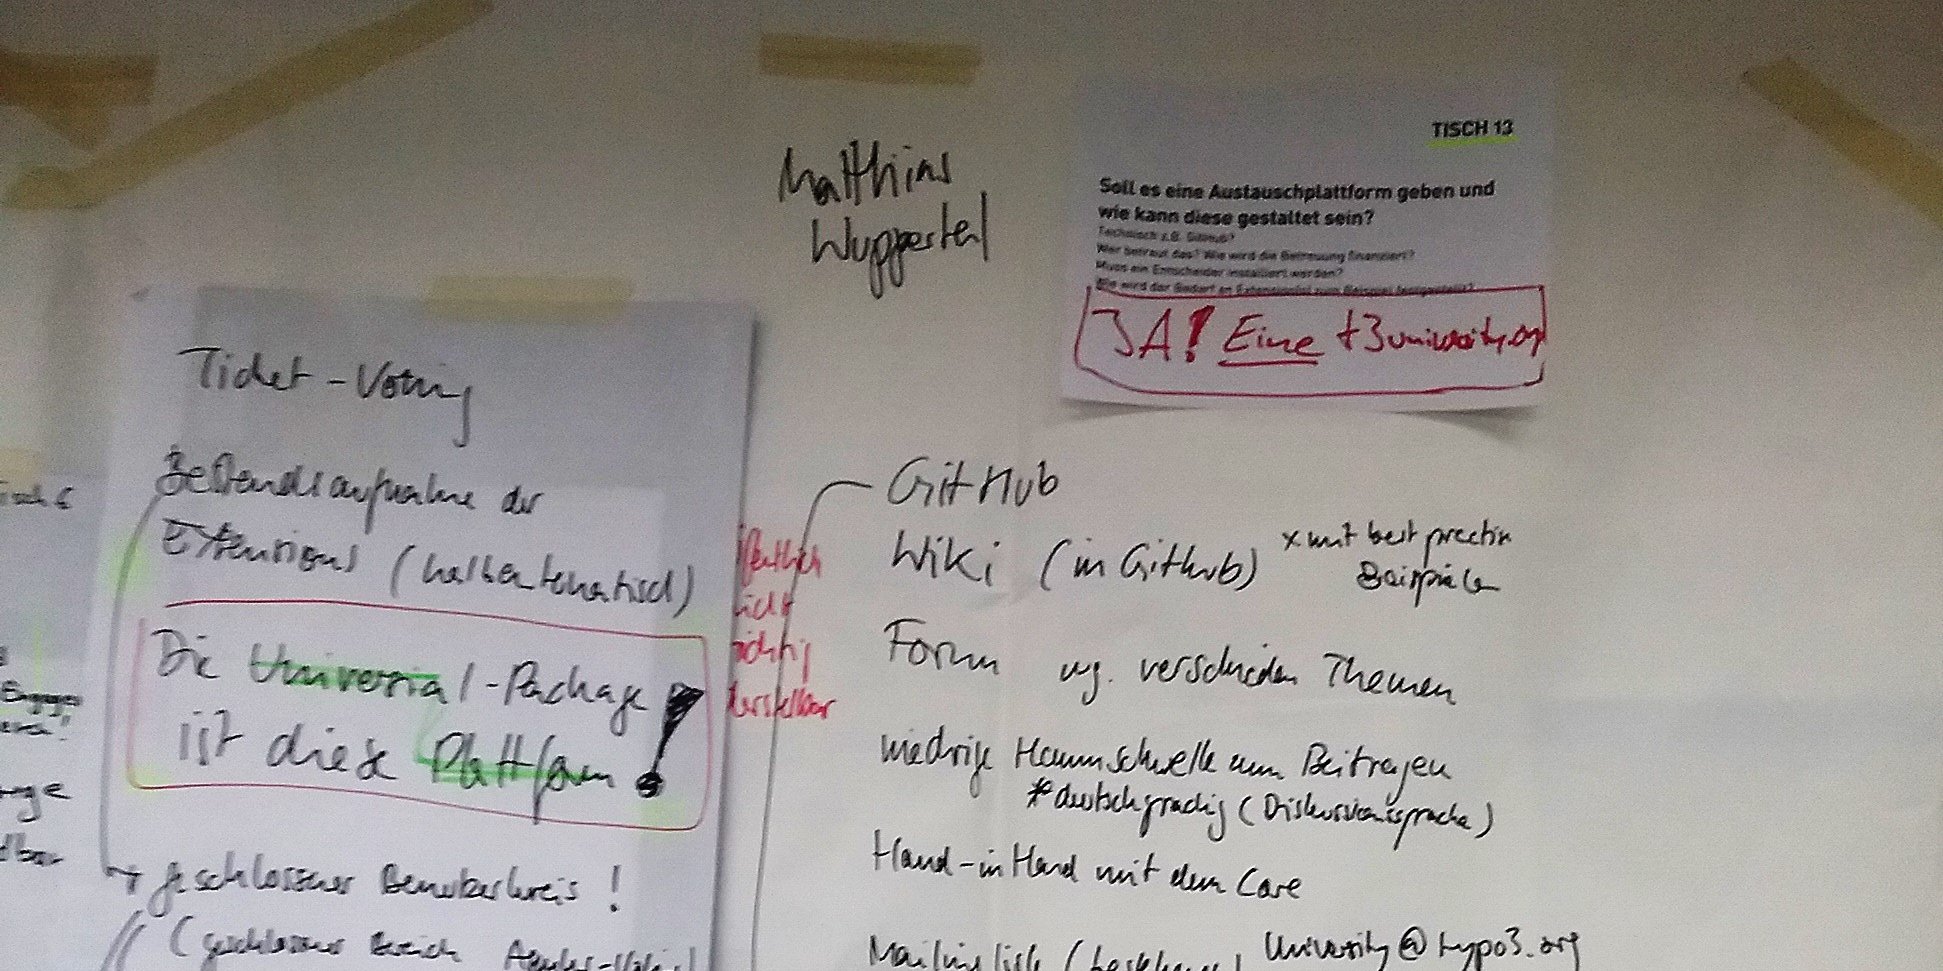 Matthias
Wuppertal
TISCH 13
Soll es eine Austauschplattform geben und
wie kann diese gestaltet sein?
Technisch z.B. GitHub?
Wer betreut das? Wie wird die Betreuung finanziert?
Muss ein Entscheider installiert werden?
Wie wird der Bedarf an Extension(s) zum Beispiel festgestellt?
JA! Eine t3university.org
Ticket-Voting
Bestandsaufnahme der
Extensions (halbautomatisch)
Die Universal-Package
ist diese Plattform!
geschlossener Benutzerkreis!
(geschlossener Bereich
GitHub
Wiki (in GitHub)
x mit best practice
Beispielen
Forum wg. verschieden Themen
niedrige Hemmschwelle zum Beitragen
*deutschsprachig (Diskussionssprache)
Hand-in Hand mit dem Core
Mailingliste (bestehend)
University@typo3.org